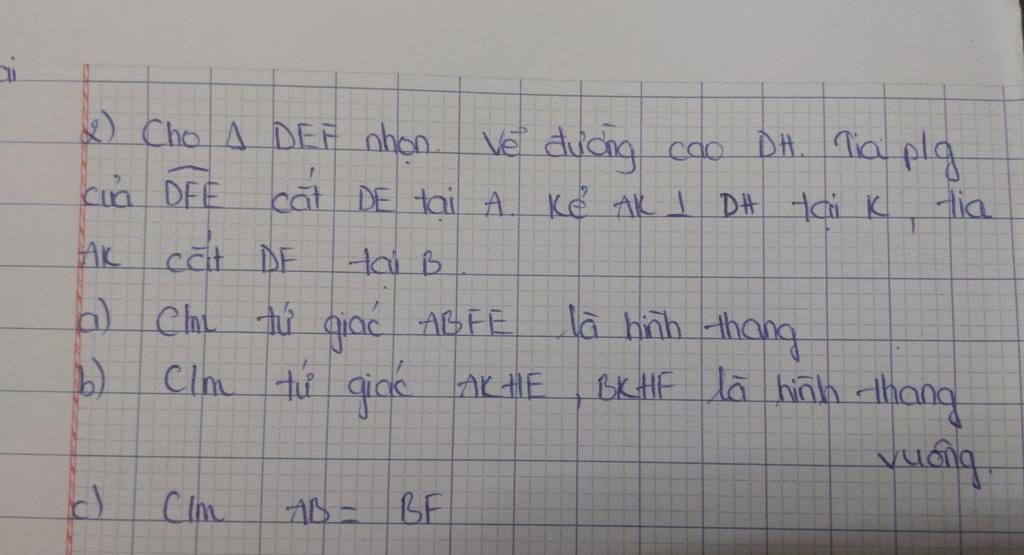 2) Cho Δ DEF nhọn. Vẽ đường cao DH. Tia plg
của DFE cắt DE tại A. Kẻ AK ⊥ DH tại K, tia
AK cắt DF tại B.
a) C/m tứ giác ABFE là hình thang
b) C/m tứ giác AKHE, BKHF là hình thang
vuông.
c) C/m AB = BF